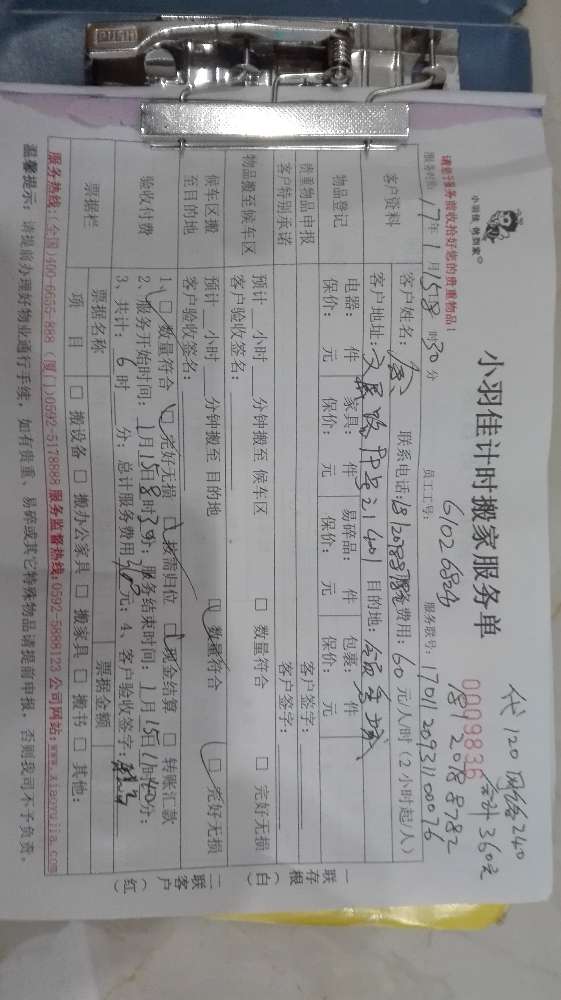 PUSH
小羽佳 您到家
小羽佳计时搬家服务单
代120 网络240
合计360元
0009836
181 2078 8782
请您于服务前收拾好您的贵重物品！
服务时间： 17年1月15日8时30分 员工工号： 6102 6824 服务联号： 17011209311 00076
客户资料
客户姓名： 联系电话：18120788782 费用：60元/人/时（2小时起/人）
客户地址： 目的地：
物品登记
电器： 件 家具： 件 易碎品： 件 包裹： 件
保价： 元 保价： 元 保价： 元 保价： 元
贵重物品申报 客户签字：
客户特别承诺 客户签字：
物品搬至候车区
预计 小时 分钟搬至 候车区 □ 数量符合 □ 完好无损
客户验收签名：
候车区搬至目的地
预计 小时 分钟搬至 目的地 □ 数量符合 □ 完好无损
客户验收签名：
验收付费
1、□ 数量符合 □ 完好无损 □ 按需归位 □ 现金结算 □ 转账汇款
2、服务开始时间：1月15日8时30分；服务结束时间：1月15日11时40分；
3、共计：6时 分；总计服务费用 元；4、客户验收签字：
票据栏
票据名称 票据金额
项 目 □ 搬设备 □ 搬办公家具 □ 搬家具 □ 搬书 □ 其他：
服务热线：(全国)400-6655-888 (厦门)0592-5178888 服务监督热线：0592-5888123 公司网站：www.xiaoyujia.com
温馨提示：请提前办理好物业通行手续，如有贵重、易碎或其它特殊物品请提前申报，否则我司不予负责。
一联存根（白）
二联客户（红）